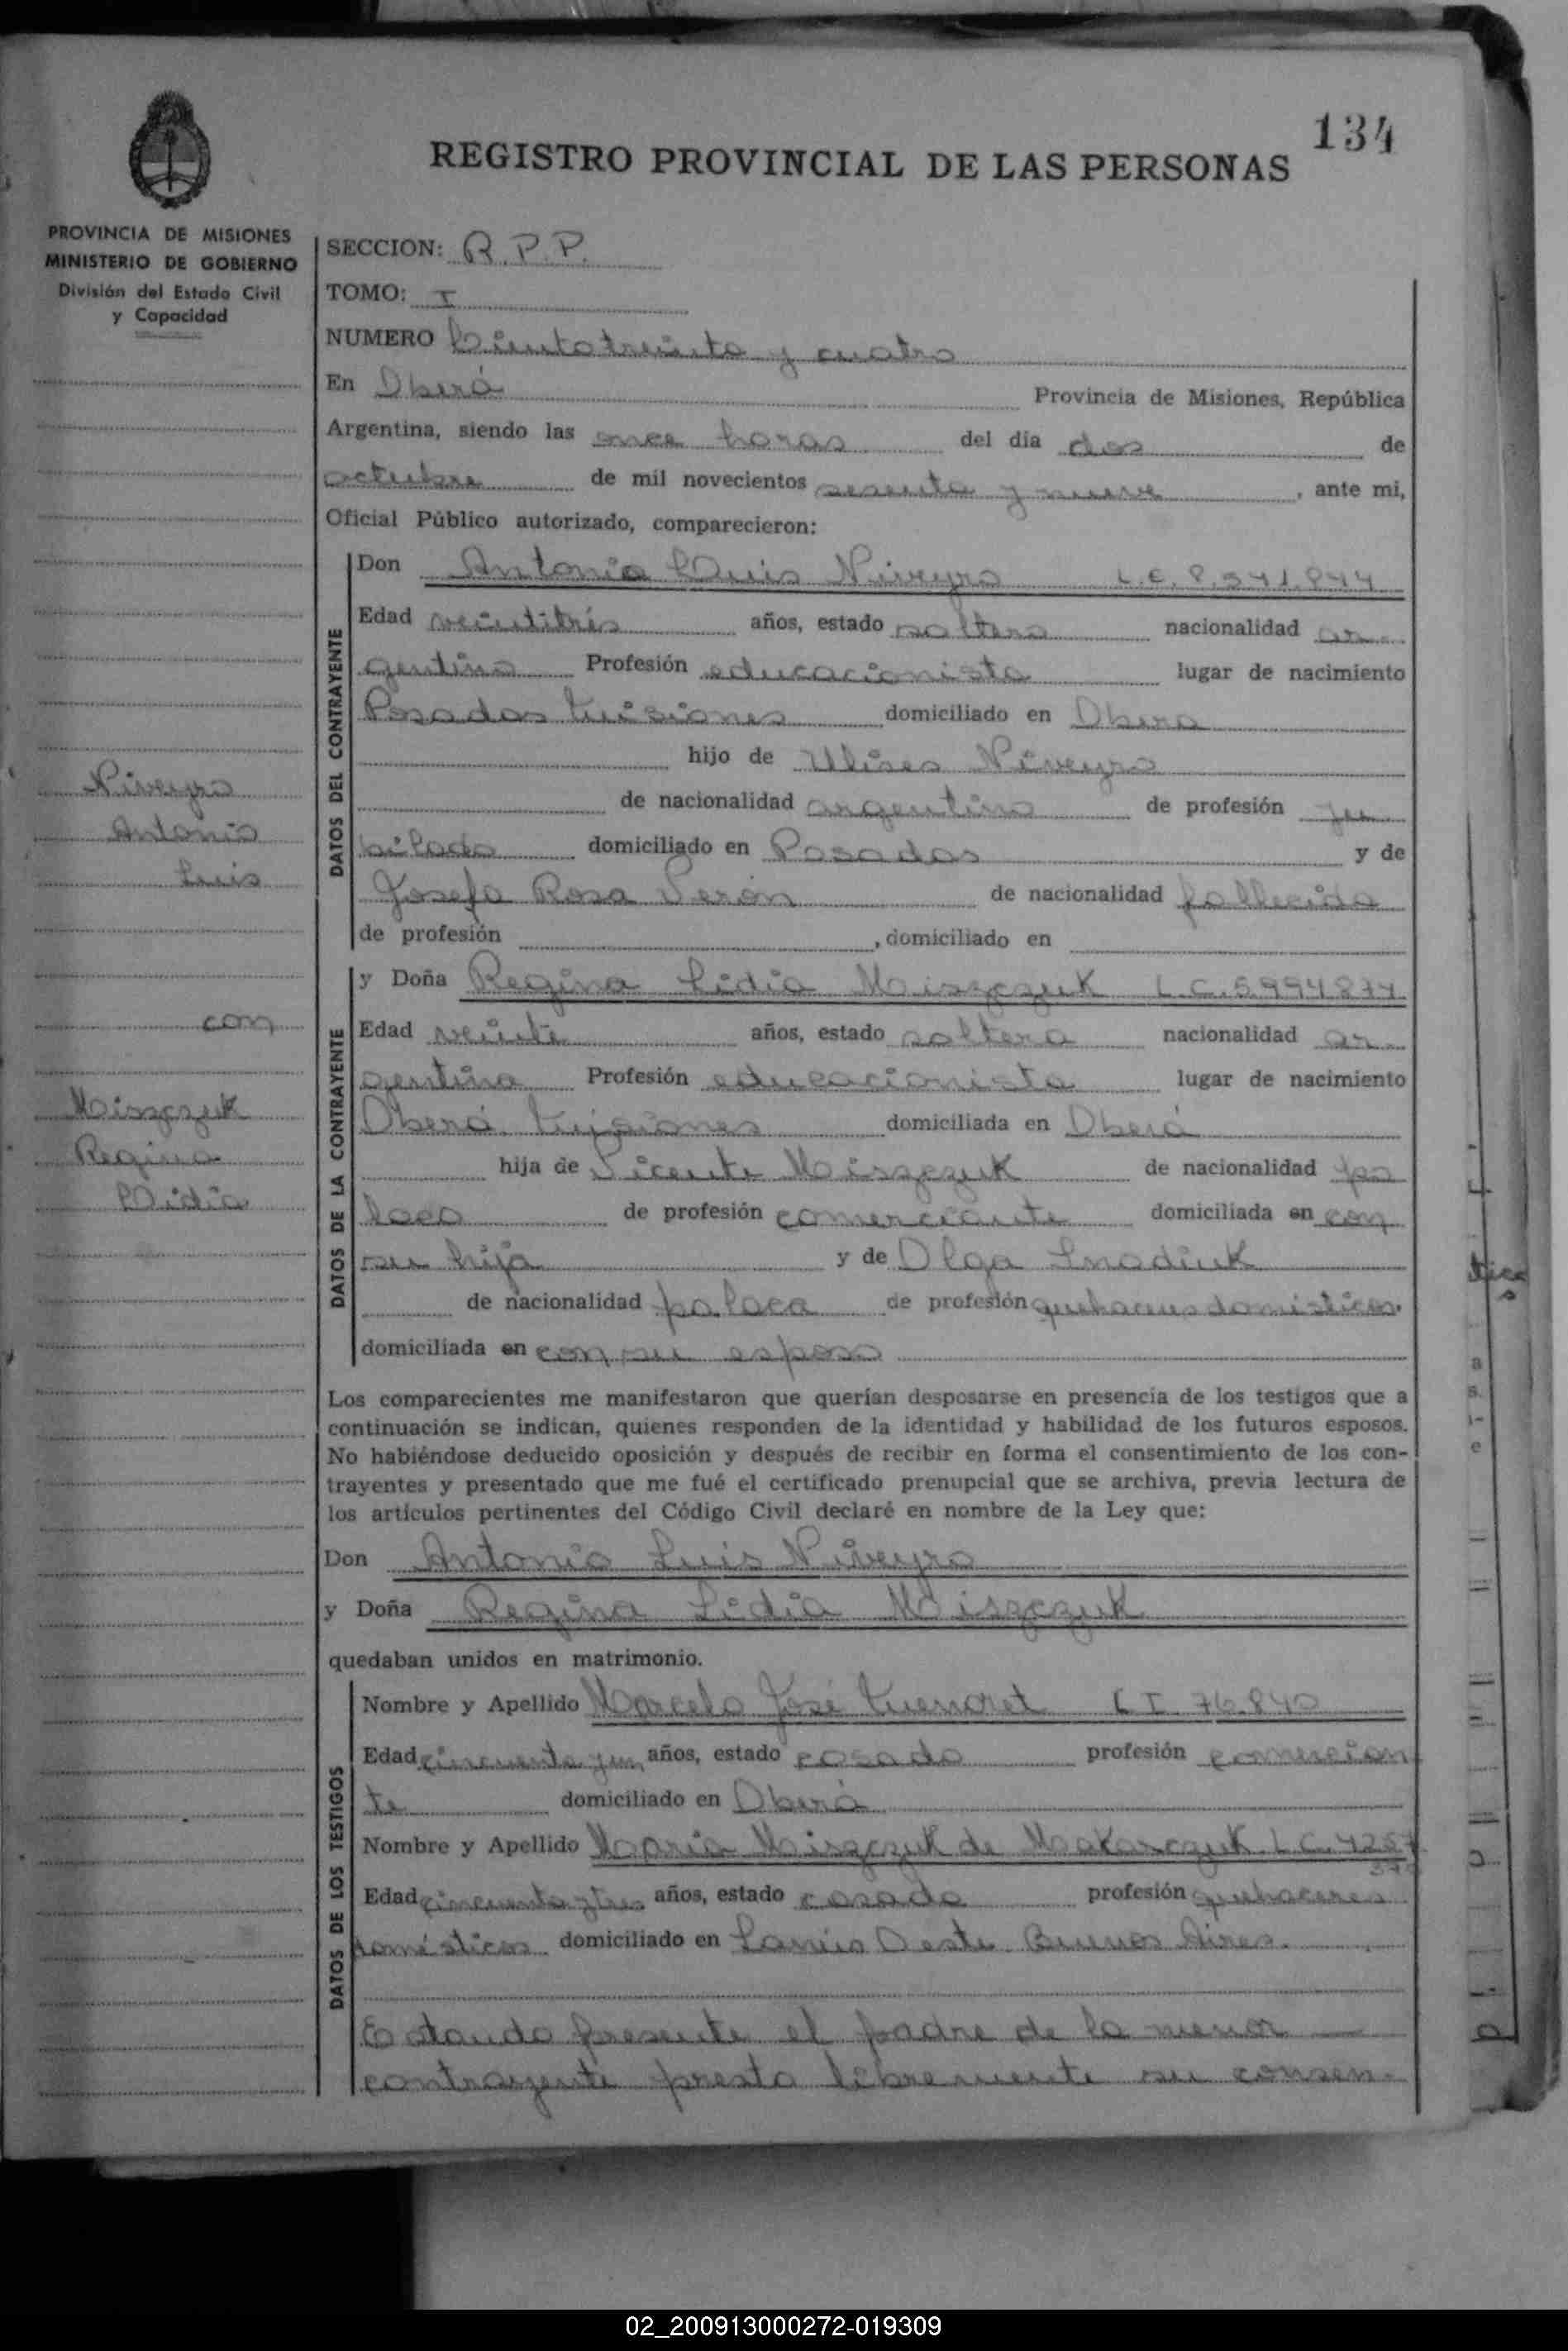 134
REGISTRO PROVINCIAL DE LAS PERSONAS
PROVINCIA DE MISIONES
MINISTERIO DE GOBIERNO
División del Estado Civil
y Capacidad
SECCION: R.P.P.
TOMO: I
NUMERO Ciento treinta y cuatro
En Oberá Provincia de Misiones, República
Argentina, siendo las once horas del día dos de
octubre de mil novecientos sesenta y nueve, ante mi,
Oficial Público autorizado, comparecieron:
DATOS DEL CONTRAYENTE
Don Antonio Luis Niveyro L.E. 8.541.844
Edad veintitrés años, estado soltero nacionalidad ar-
gentino Profesión educacionista lugar de nacimiento
Posadas Misiones domiciliado en Oberá
hijo de Ulises Niveyro
de nacionalidad argentino de profesión ju
bilado domiciliado en Posadas y de
Josefa Rosa Perón de nacionalidad fallecida
de profesión , domiciliado en
Niveyro
Antonio
Luis
con
Miszczuk
Regina
Lidia
DATOS DE LA CONTRAYENTE
y Doña Regina Lidia Miszczuk L.C. 5.994874
Edad veinte años, estado soltera nacionalidad ar-
gentina Profesión educacionista lugar de nacimiento
Oberá Misiones domiciliada en Oberá
hija de Vicente Miszczuk de nacionalidad po
laca de profesión comerciante domiciliada en con
su hija y de Olga
de nacionalidad polaca de profesión quehaceres domésticos.
domiciliada en con su esposo
Los comparecientes me manifestaron que querían desposarse en presencia de los testigos que a
continuación se indican, quienes responden de la identidad y habilidad de los futuros esposos.
No habiéndose deducido oposición y después de recibir en forma el consentimiento de los con-
trayentes y presentado que me fué el certificado prenupcial que se archiva, previa lectura de
los artículos pertinentes del Código Civil declaré en nombre de la Ley que:
Don Antonio Luis Niveyro
y Doña Regina Lidia Miszczuk
quedaban unidos en matrimonio.
DATOS DE LOS TESTIGOS
Nombre y Apellido Marcelo José C.I. 76.840
Edad cincuenta y un años, estado casado profesión comercian
te domiciliado en Oberá
Nombre y Apellido María Miszczuk de Makarczuk L.C. 4257
Edad cincuenta y tres años, estado casada profesión quehaceres
domésticos domiciliado en Lanús Oeste Buenos Aires.
Estando presente el padre de la menor
contrayente presta libremente su consen-
02_200913000272-019309